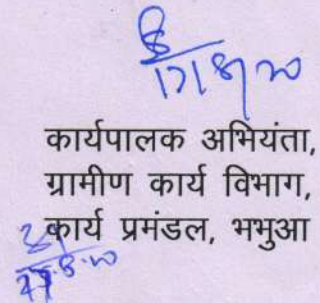 17/8/20
कार्यपालक अभियंता,
ग्रामीण कार्य विभाग,
कार्य प्रमंडल, भभुआ